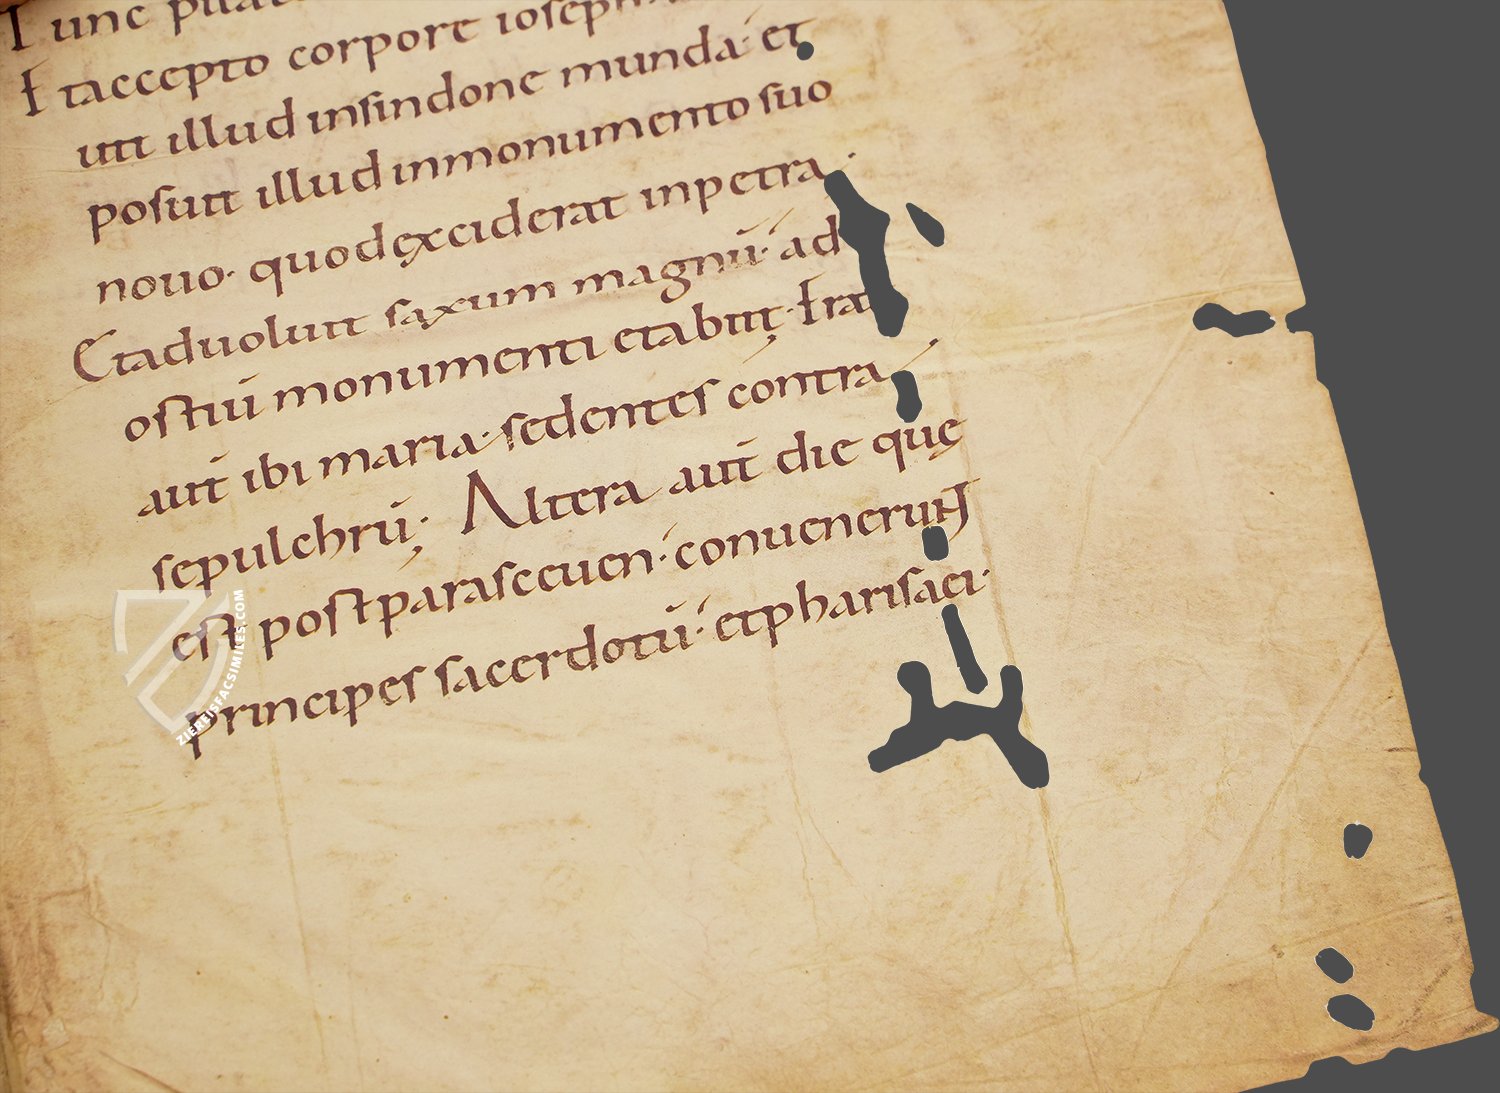 Tunc pilat
Et accepto corpore ioseph
uit illud insindone munda· et
posuit illud inmonumento suo
nouo· quod exciderat inpetra·
Et aduoluit saxum magnū· ad
ostiū monumenti et abiit· Erat
aut̄ ibi maria· sedentes contra
sepulchrū; Altera aut̄ die quę
est post parasceuen· conuenerunt
principes sacerdotū· et pharisaei·
ZIEREISFACSIMILES.COM